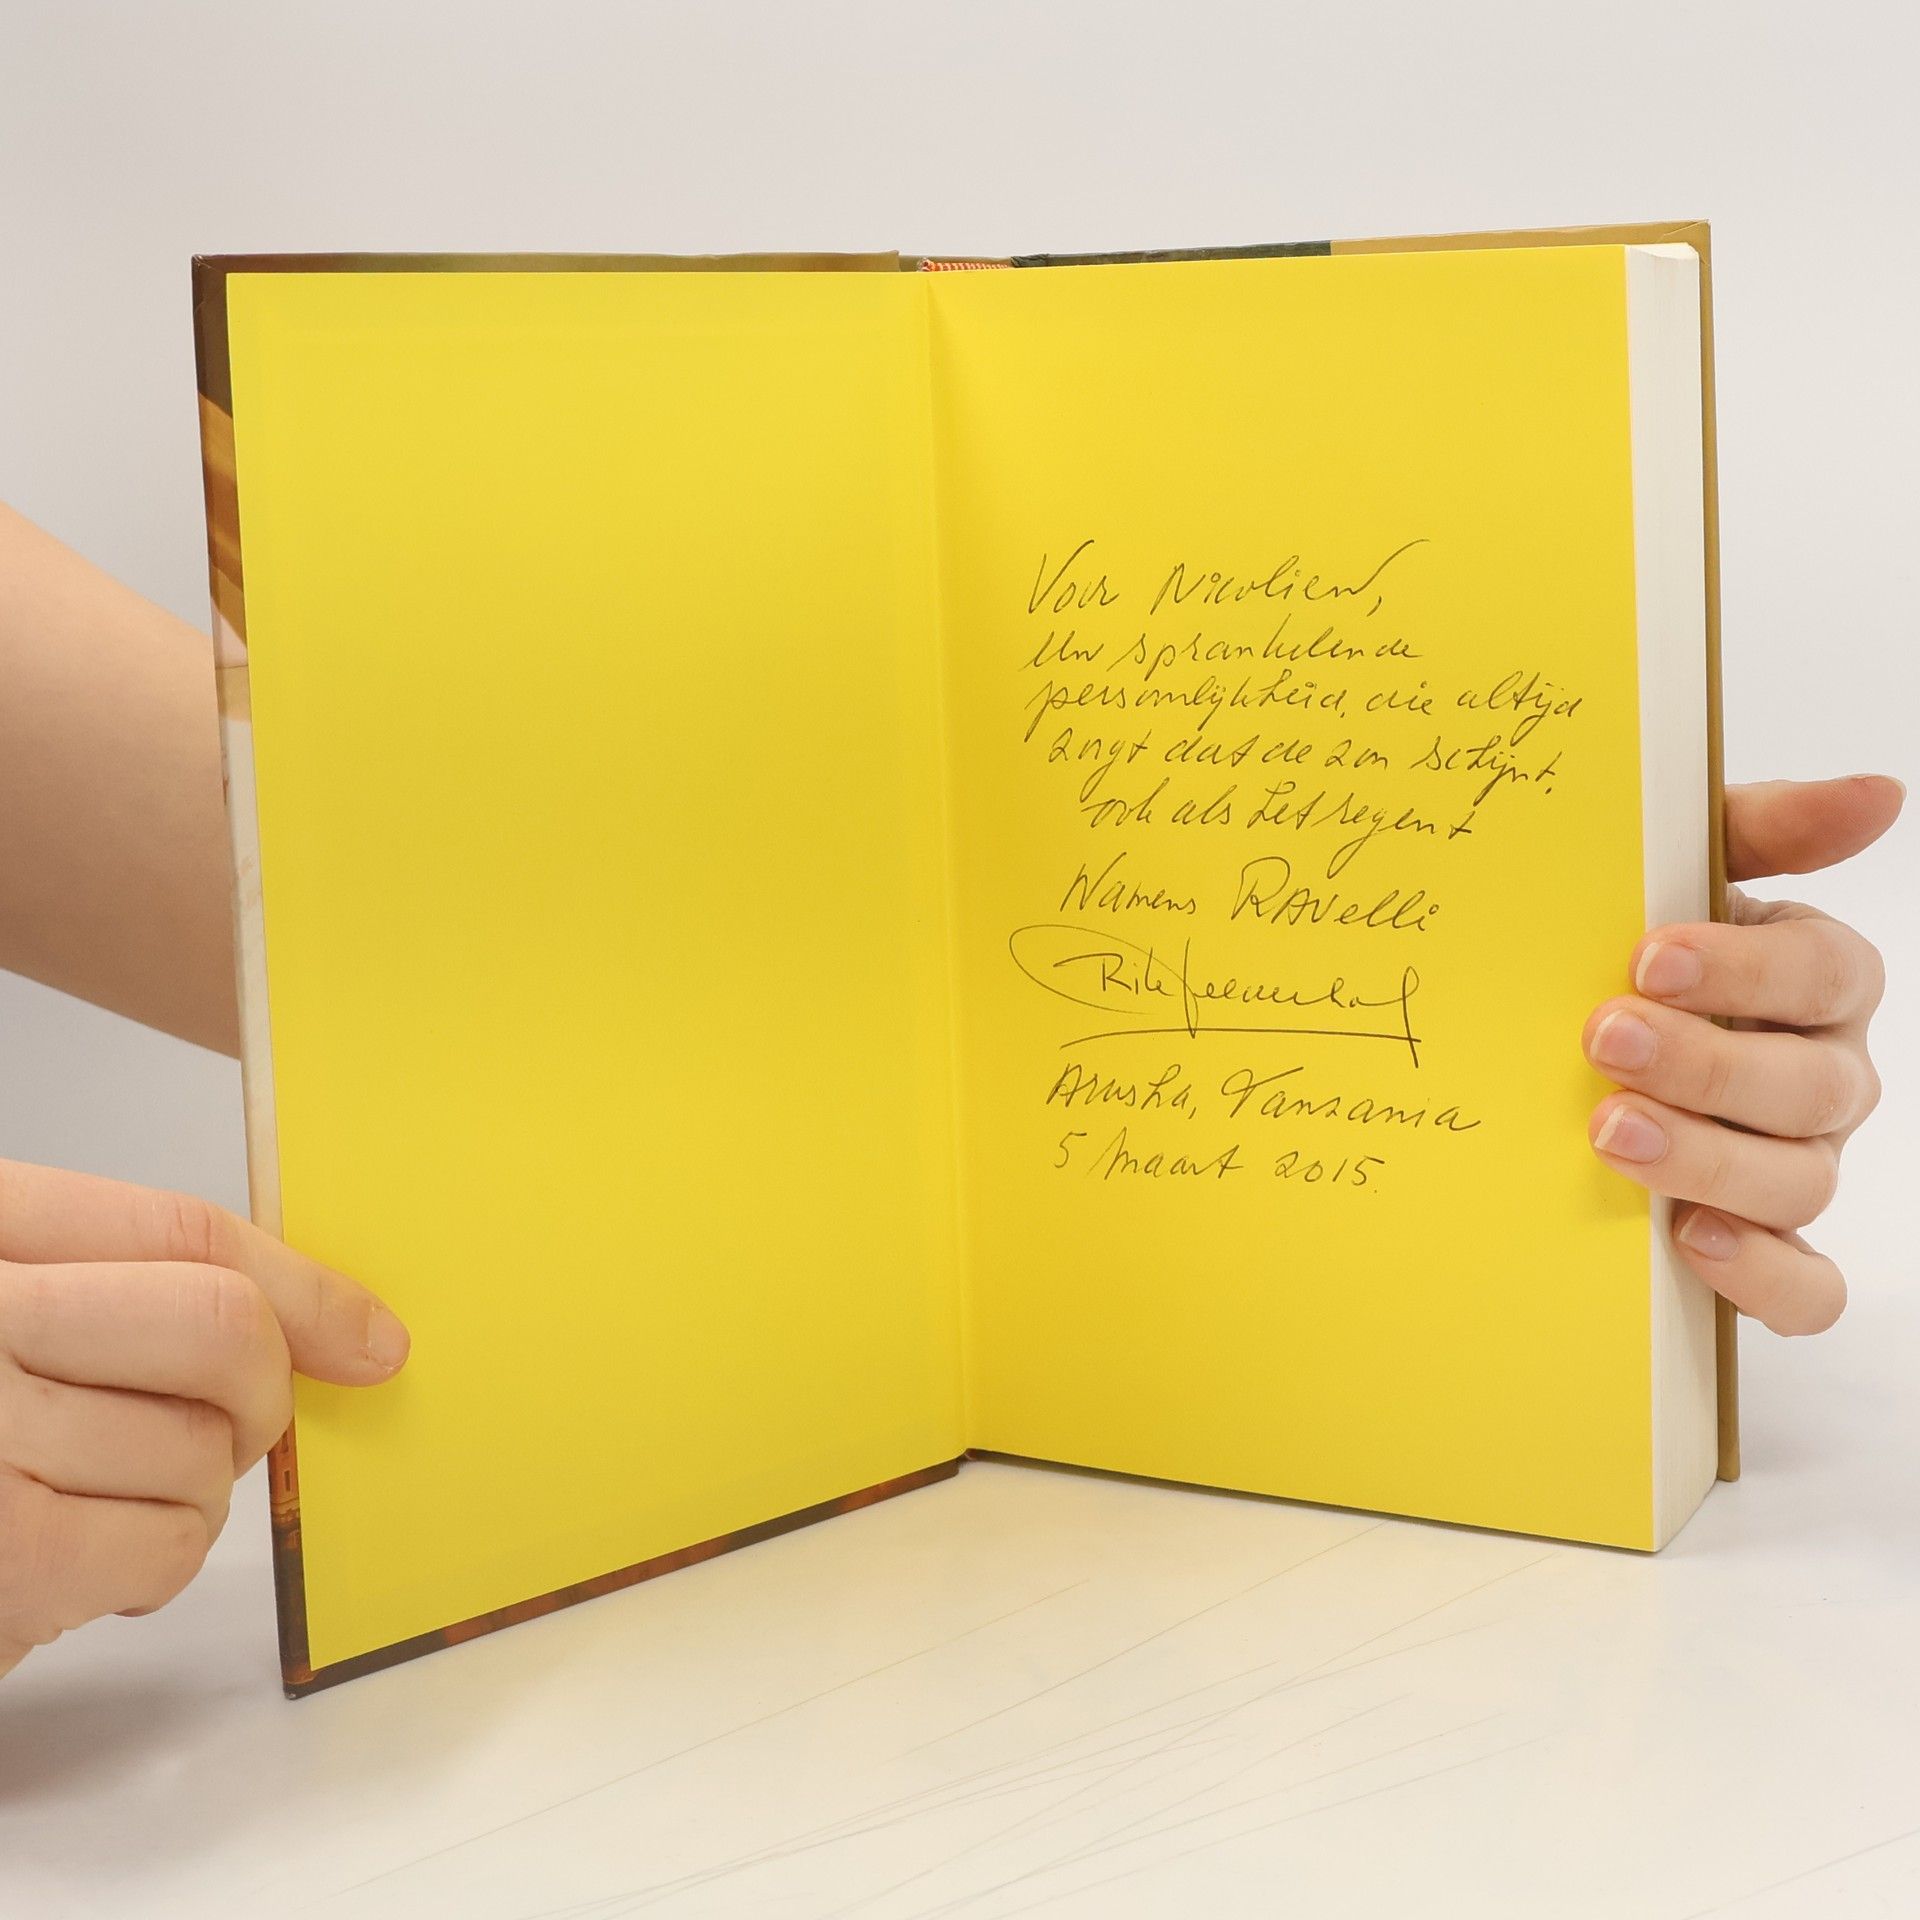 Voor Nicolien,
een sprankelende
persoonlijkheid, die altijd
zorgt dat de zon schijnt,
ook als het regent
Namens RAvelli
Arusha, Tanzania
5 maart 2015.